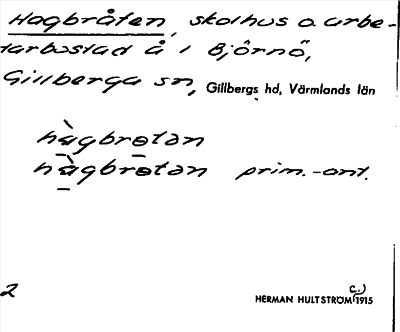 Hagbråten, skolhus o. arbe-
tarbostad å 1 Björnö,
Gillberga sn, Gillbergs hd, Värmlands län
hàgbrotan
hàgbrotan prim.-ant.
2
HERMAN HULTSTRÖM (c.) 1915